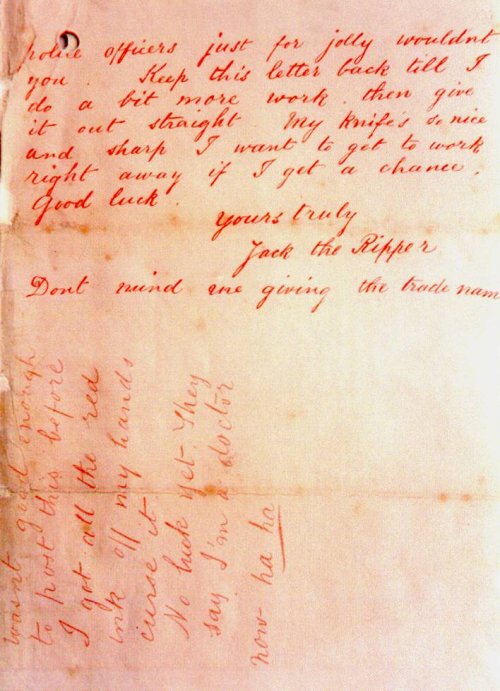 police officers just for jolly wouldnt
you. Keep this letter back till I
do a bit more work. then give
it out straight. My knife's so nice
and sharp I want to get to work
right away if I get a chance.
Good luck.
yours truly
Jack the Ripper
Dont mind me giving the trade nam
wasnt good enough
to post this before
I got all the red
ink off my hands
curse it
No luck yet. They
say I'm a doctor
now ha ha